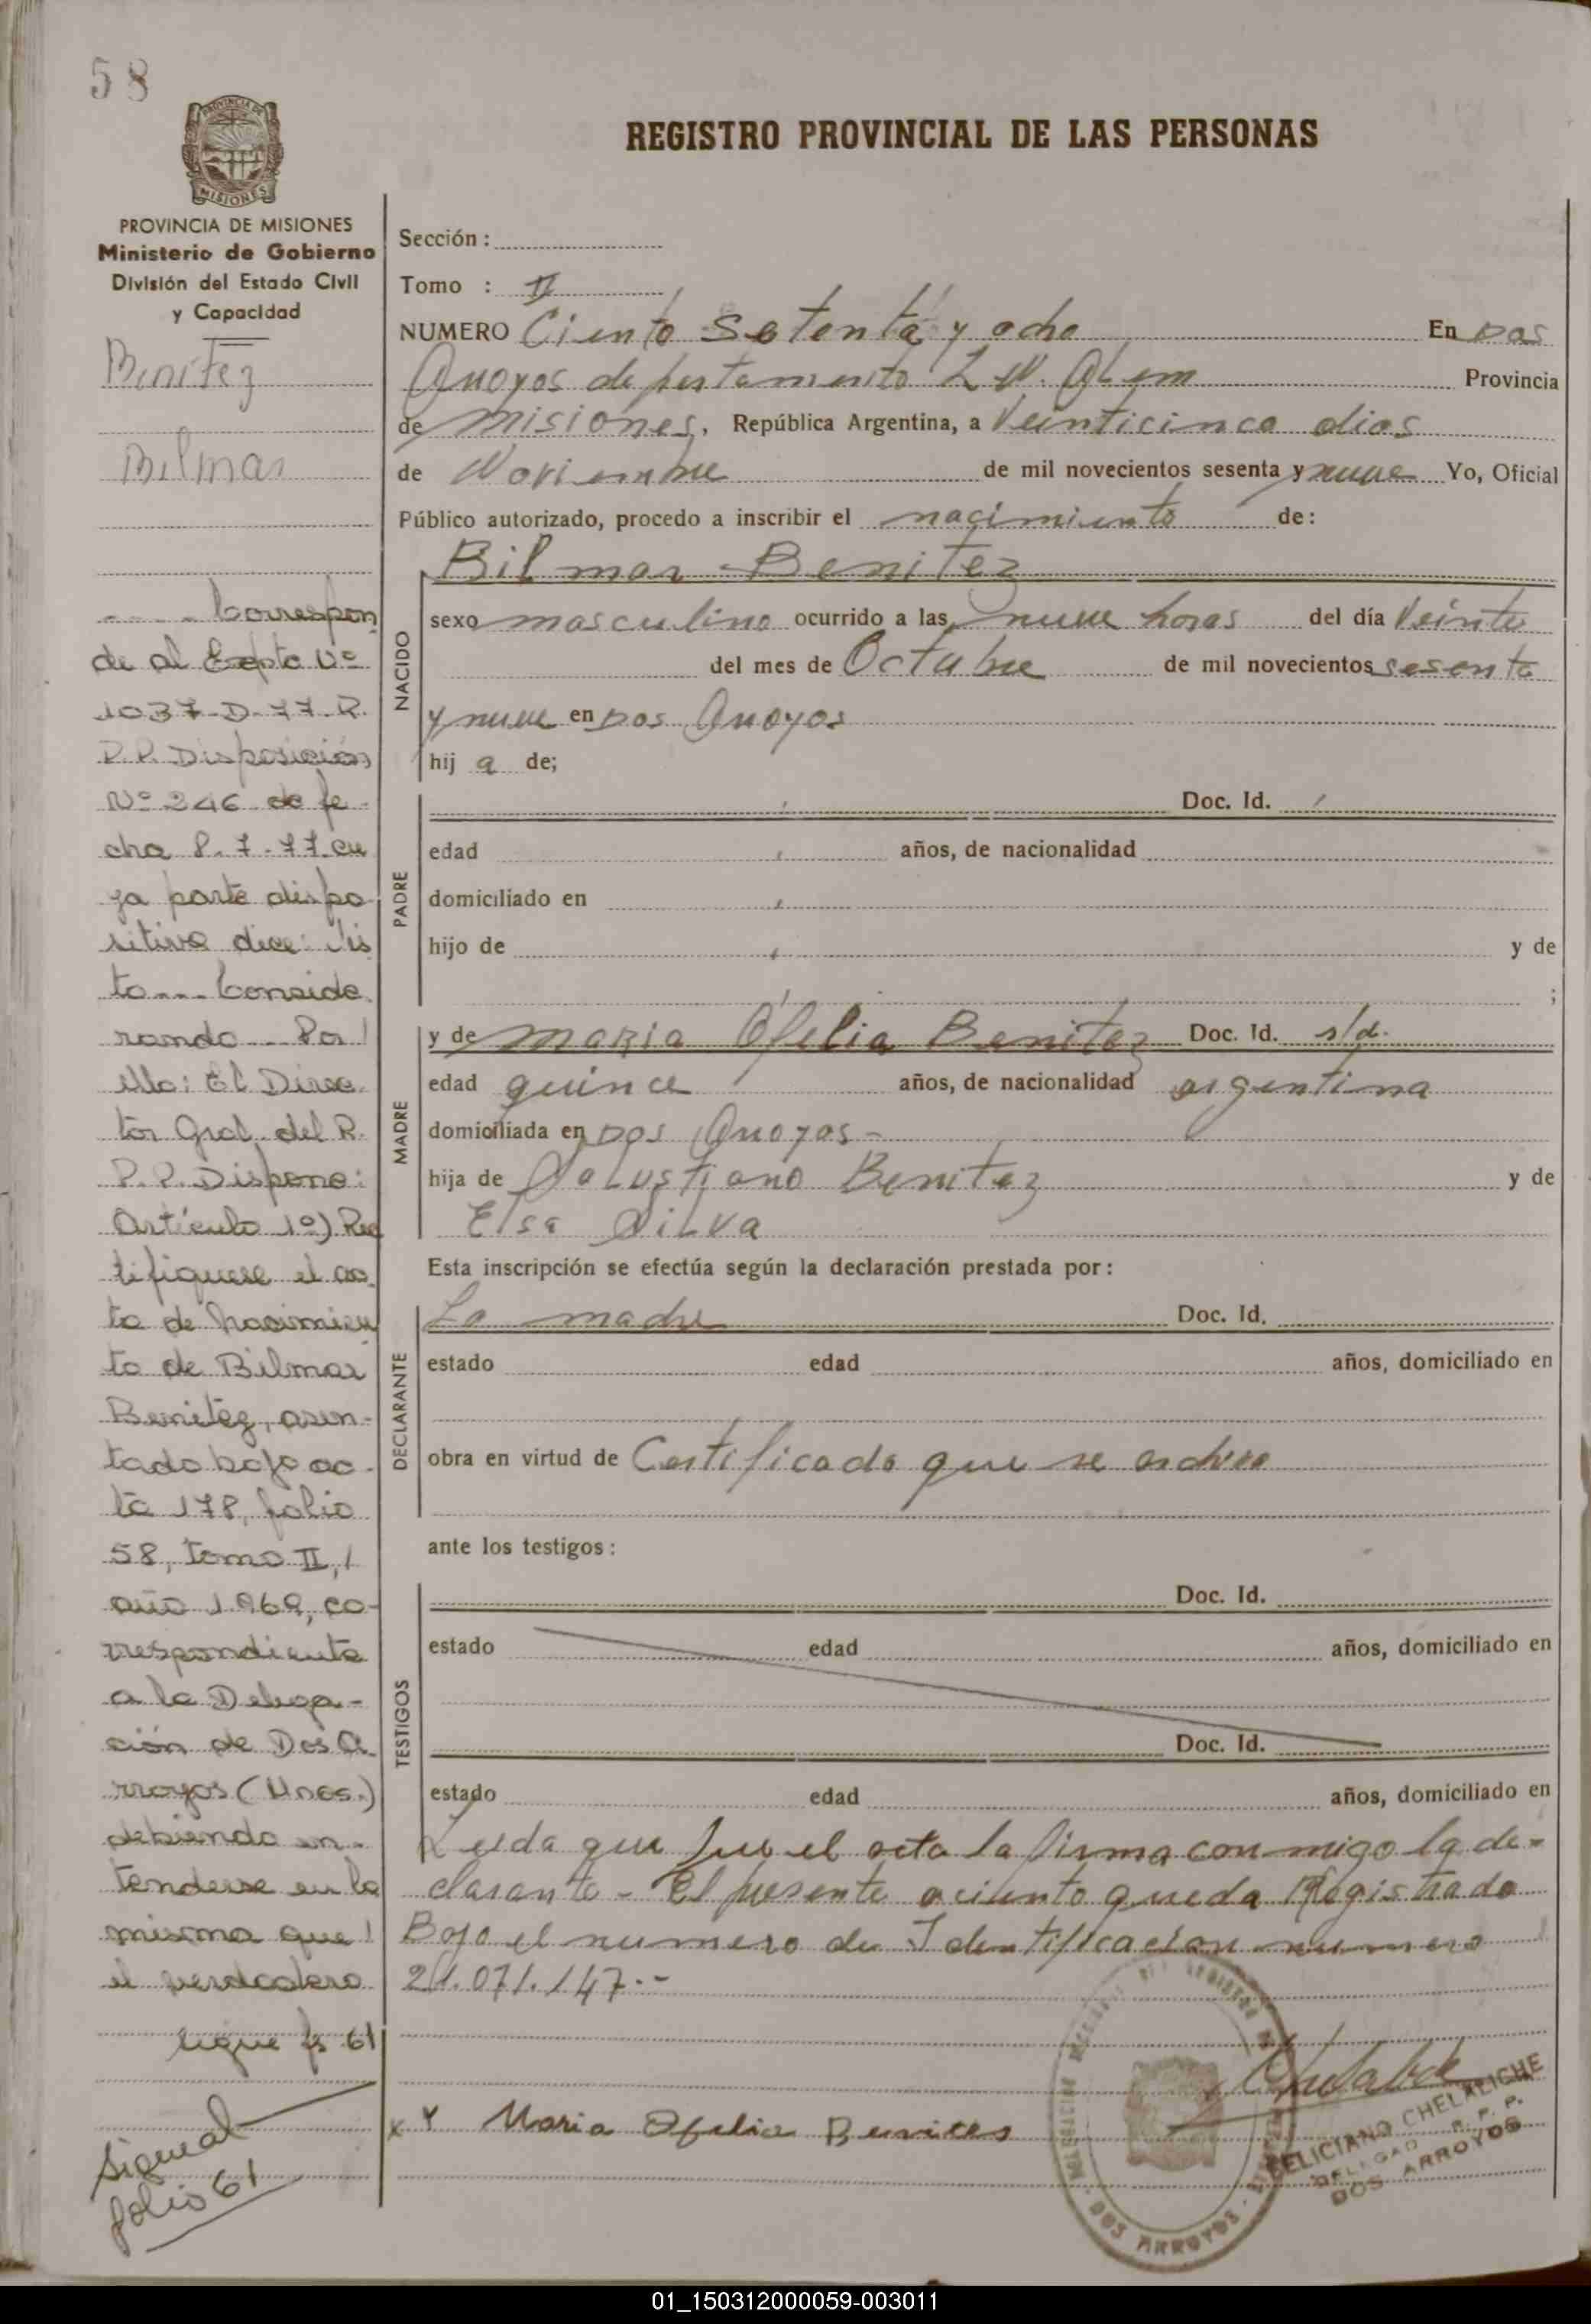 58
PROVINCIA DE
MISIONES
PROVINCIA DE MISIONES
Ministerio de Gobierno
División del Estado Civil
y Capacidad
Benitez
Bilmar
..... Correspon
de al Expte Nº
1037-D-77-R.
P.P. Disposición
Nº 246 de fe-
cha 8.7.77 cu
ya parte dispo
sitiva dice: Vis
to... Conside
rando... Por
ello: El Direc
tor Gral. del R.
P.P. Dispone:
Artículo 1º) Rec
tifiquese el ac
ta de nacimien
to de Bilmar
Benitez, asen-
tado bajo ac-
ta 178, folio
58, tomo II,
año 1969, co-
rrespondiente
a la Delega-
ción de Dos A
rroyos (Mnes.)
debiendo en-
tenderse en la
misma que
el verdadero
sigue fs 61
Sigue al
folio 61
REGISTRO PROVINCIAL DE LAS PERSONAS
Sección :
Tomo : II
NUMERO Ciento Setenta y ocho En Dos
Arroyos departamento L N. Alem Provincia
de Misiones, República Argentina, a Veinticinco dias
de Noviembre de mil novecientos sesenta y nueve Yo, Oficial
Público autorizado, procedo a inscribir el nacimiento de:
Bilmar Benitez
NACIDO
sexo masculino ocurrido a las nueve horas del día Veinte
del mes de Octubre de mil novecientos sesenta
y nueve en Dos Arroyos
hij a de;
PADRE
Doc. Id.
edad años, de nacionalidad
domiciliado en
hijo de y de
;
MADRE
y de Maria Ofelia Benitez Doc. Id. s/d.
edad quince años, de nacionalidad argentina
domiciliada en Dos Arroyos -
hija de Salustiano Benitez y de
Elsa Silva
Esta inscripción se efectúa según la declaración prestada por:
DECLARANTE
La madre Doc. Id.
estado edad años, domiciliado en
obra en virtud de Certificado que se archiva
ante los testigos:
TESTIGOS
Doc. Id.
estado edad años, domiciliado en
Doc. Id.
estado edad años, domiciliado en
Leida que fue el acta la firma conmigo la de-
clarante - El presente aciento queda Registrado
Bajo el numero de Identificacion numero
21.071.147.-
x Y Maria Ofelia Benites
FELICIANO CHELALICHE
DELEGAD R. P. P.
DOS ARROYOS
DOS ARROYOS
01_150312000059-003011